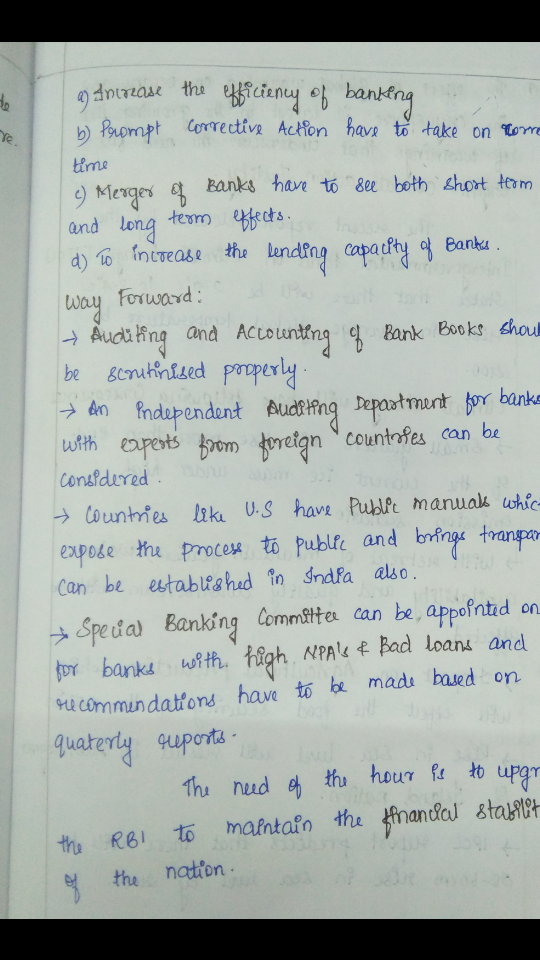 a) Increase the efficiency of banking
b) Prompt Corrective Action have to take on
time
c) Merger of Banks have to see both short term
and long term effects.
d) To increase the lending capacity of Banks.
Way Forward:
→ Auditing and Accounting of Bank Books shoul
be scrutinised properly.
→ An independent Auditing Department for banks
with experts from foreign countries can be
considered.
→ Countries like U.S have Public manuals whic
expose the process to public and brings transpar
can be established in India also.
→ Special Banking Committee can be appointed on
for banks with high NPA's & Bad loans and
recommendations have to be made based on
quaterly reports.
The need of the hour is to upgr
the RBI to maintain the financial stabilit
of the nation.